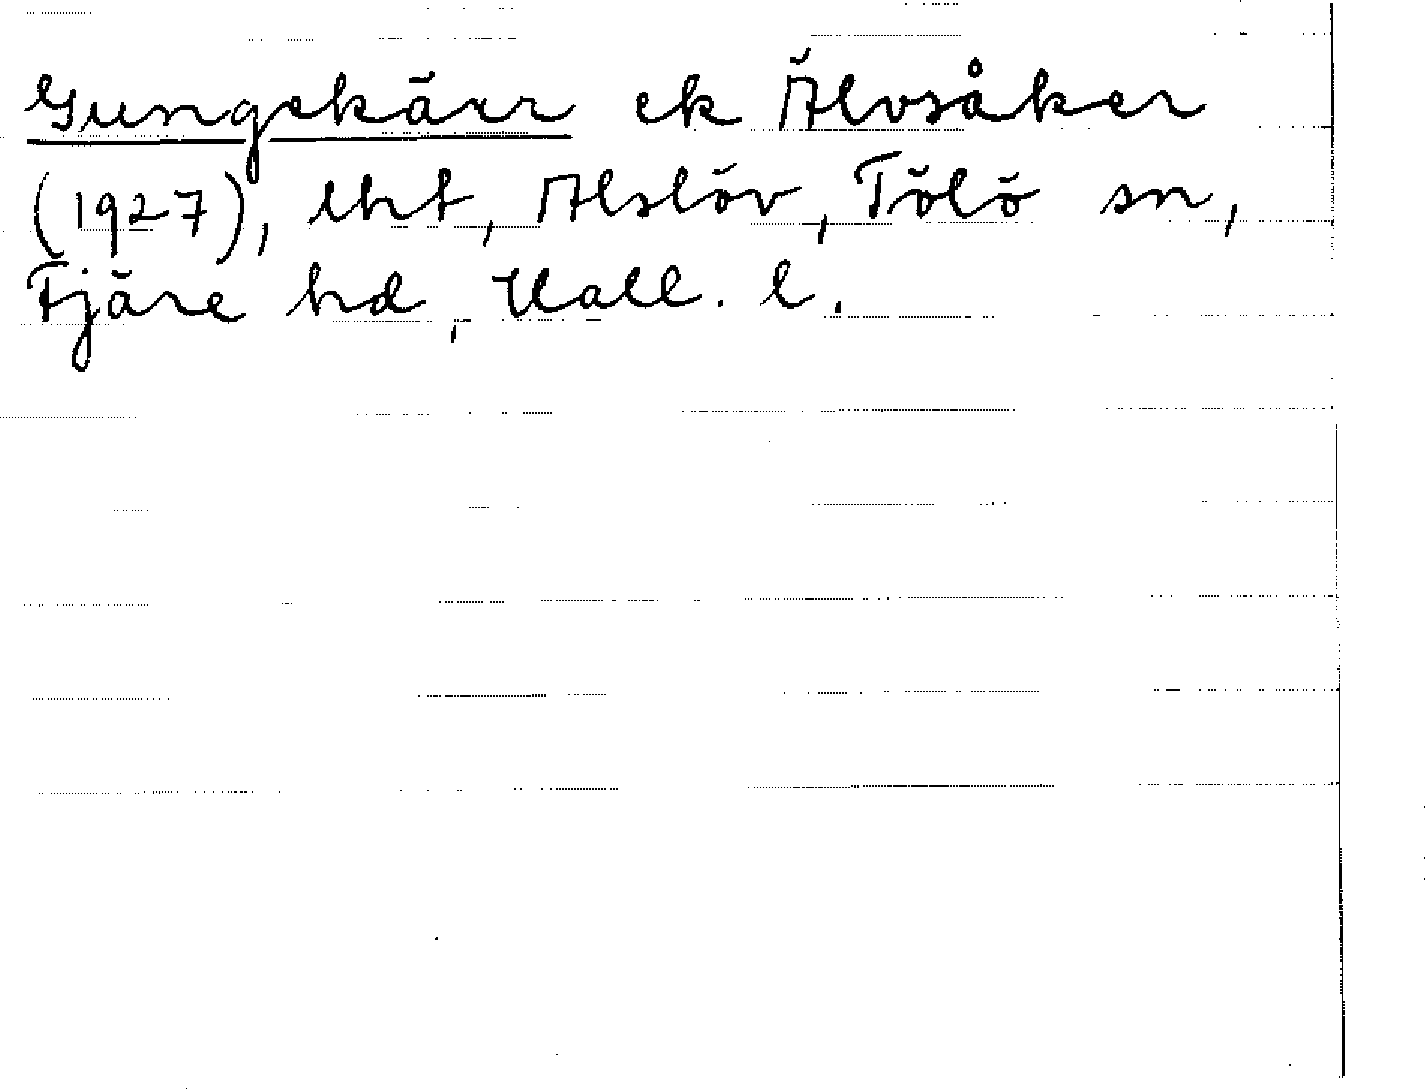 Gungekärr ek Älvsåker
(1927), lht, Alslöv, Tölö sn,
Fjäre hd, Hall. l.